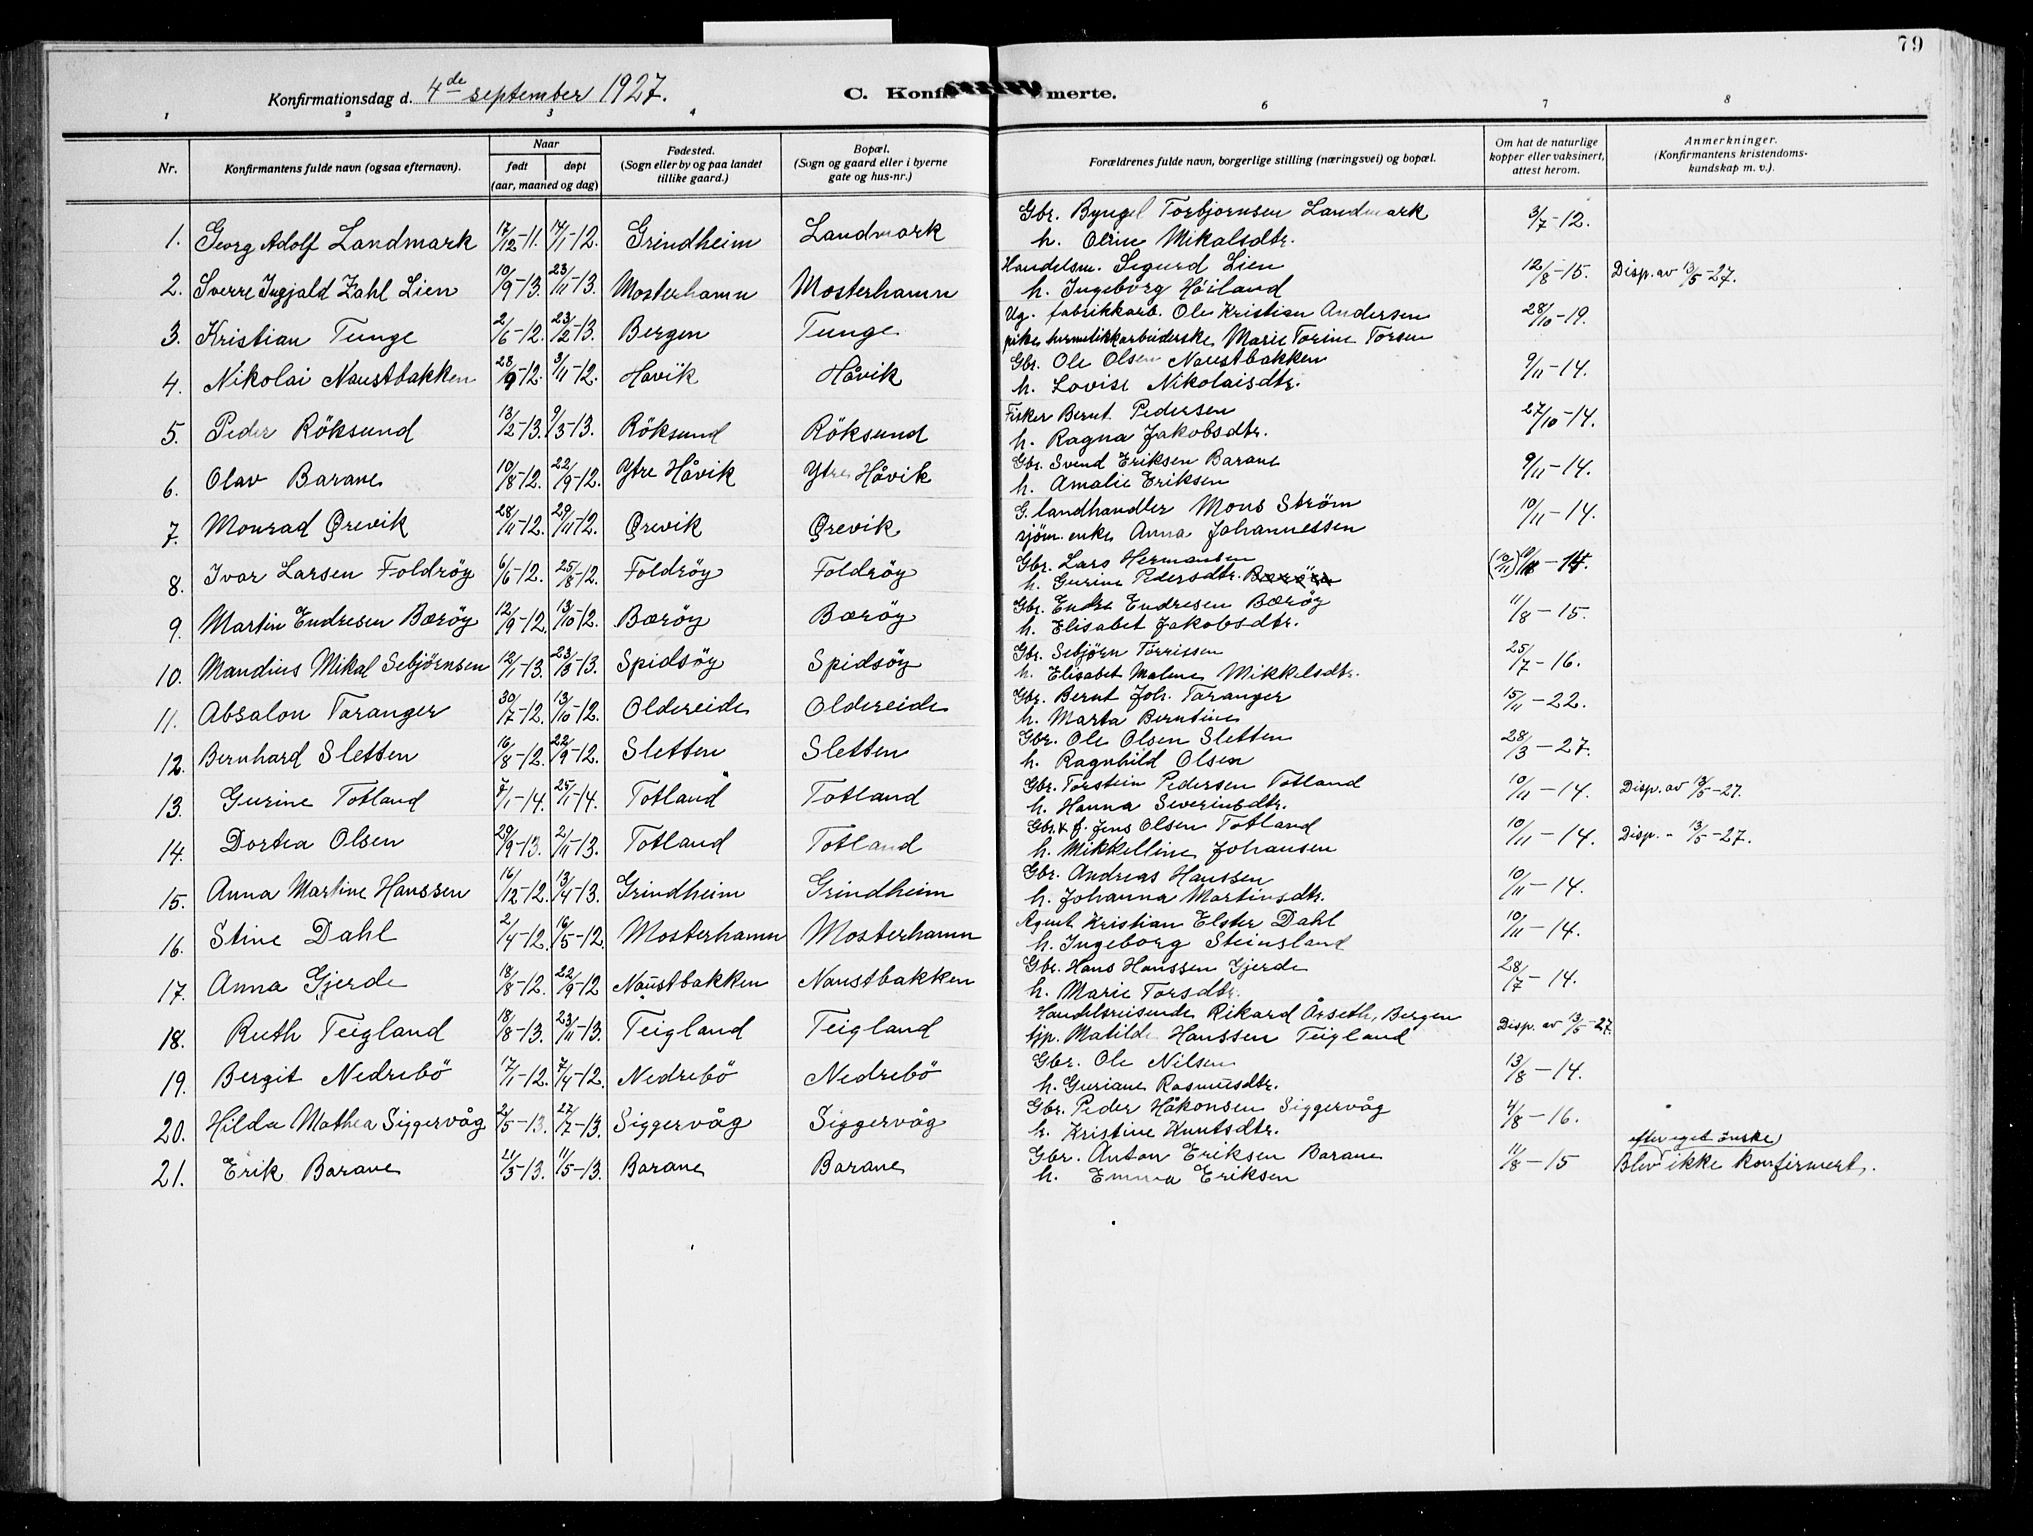 79
Konfirmationsdag d. 4de september 1927.
C. Konfi merte.
1 2 3 4 6 7 8
Nr.
Konfirmantens fulde navn (ogsaa efternavn).
Naar
født døpt
(aar, maaned og dag)
Fødested.
(Sogn eller by og paa landet
tillike gaard.)
Bopæl.
(Sogn og gaard eller i byerne
gate og hus-nr.)
Forældrenes fulde navn, borgerlige stilling (næringsvei) og bopæl.
Om hat de naturlige
kopper eller vaksinert,
attest herom.
Anmerkninger.
(Konfirmantens kristendoms-
kundskap m. v.).
1. Georg Adolf Landmark 17/12-11. 14/1-12. Grindheim Landmark Gbr. Byngel Torbjornsen Landmark 3/7-12.
h. Oline Mikalsdtr.
2. Sverre Ingjald Zahl Lien 10/9-13. 23/11-13. Mosterhamn Mosterhamn Handelsm. Sigurd Lien 12/8-15. Disp. av 13/5-27.
h. Ingeborg Høiland
3. Kristian Tunge 2/6-12. 23/2-13. Bergen Tunge Ug. fabrikkarb. Ole Kristian Andersen 28/10-19.
pike hermetikkarbeiderske Marie Torine Torsen
4. Nikolai Naustbakken 28/9-12. 3/11-12. Håvik Håvik Gbr. Ole Olsen Naustbakken 9/11-14.
h. Lovise Nikolaisdtr.
5. Peder Röksund 13/2-13. 9/3-13. Röksund Röksund Fisker Bernt Pedersen 27/10-14.
h. Ragna Jakobsdtr.
6. Olav Barane 10/8-12. 22/9-12. Ytre Håvik Ytre Håvik Gbr. Svend Eriksen Barane 9/11-14.
h. Amalie Eriksen
7. Monrad Ørevik 28/11-12. 29/11-12. Ørevik Ørevik G. landhandler Mons Strøm 10/11-14.
sjöm. enke Anna Johannessen
8. Ivar Larsen Foldröy 6/6-12. 25/8-12. Foldröy Foldröy Gbr. Lars Hermansen (10/11) -14.
h. Gurine Pedersdtr.
9. Martin Endresen Bæröy 12/9-12. 13/10-12. Bæröy Bæröy Gbr. Endre Endresen Bæröy 11/8-15.
h. Elisabet Jakobsdtr.
10. Mandius Mikal Sebjørnsen 12/1-13. 23/3-13. Spidsöy Spidsöy Gbr. Sebjörn Törrissen 25/7-16.
h. Elisabet Malene Mikkelsdtr.
11. Absalon Taranger 30/7-12. 13/10-12. Oldereide Oldereide Gbr. Bernt Joh. Taranger 15/11-22.
h. Marta Berntine
12. Bernhard Sletten 16/8-12. 22/9-12. Sletten Sletten Gbr. Ole Olsen Sletten 28/3-27.
h. Ragnhild Olsen
13. Gurine Totland 7/1-14. 25/1-14. Totland Totland Gbr. Torstein Pedersen Totland 10/11-14. Disp. av 13/5-27.
h. Hanna Severinsdtr.
14. Dortea Olsen 29/9-13. 2/11-13. Totland Totland Gbr. & f. Jens Olsen Totland 10/11-14. Disp. - 13/5-27.
h. Mikkelline Johansen
15. Anna Martine Hanssen 16/12-12. 13/4-13. Grindheim Grindheim Gbr. Andreas Hanssen 10/11-14.
h. Johanna Martinsdtr.
16. Stine Dahl 2/4-12. 16/5-12. Mosterhamn Mosterhamn Agent Kristian Elster Dahl 10/11-14.
h. Ingeborg Steinsland
17. Anna Gjerde 18/8-12. 22/9-12 Naustbakken Naustbakken Gbr. Hans Hanssen Gjerde 28/7-14.
h. Marie Torsdtr.
18. Ruth Teigland 18/8-13. 23/11-13. Teigland Teigland Handelsreisende Rikard Årseth, Bergen Disp. av 13/5-27.
tjp. Matilde Hanssen Teigland
19. Bergit Nedrebö 17/1-12. 7/4-12. Nedrebö Nedrebö Gbr. Ole Nilsen 13/8-14.
h. Guriane Rasmusdtr.
20. Hilda Mathea Siggervåg 24/5-13. 27/7-13. Siggervåg Siggervåg Gbr. Peder Håkonsen Siggervåg 4/8-16.
h. Kristine Knutsdtr.
21. Erik Barane 21/3-13. 11/5-13. Barane Barane Gbr. Anton Eriksen Barane 11/8-15 Blev efter eget önske ikke konfirmert.
h. Emma Eriksen